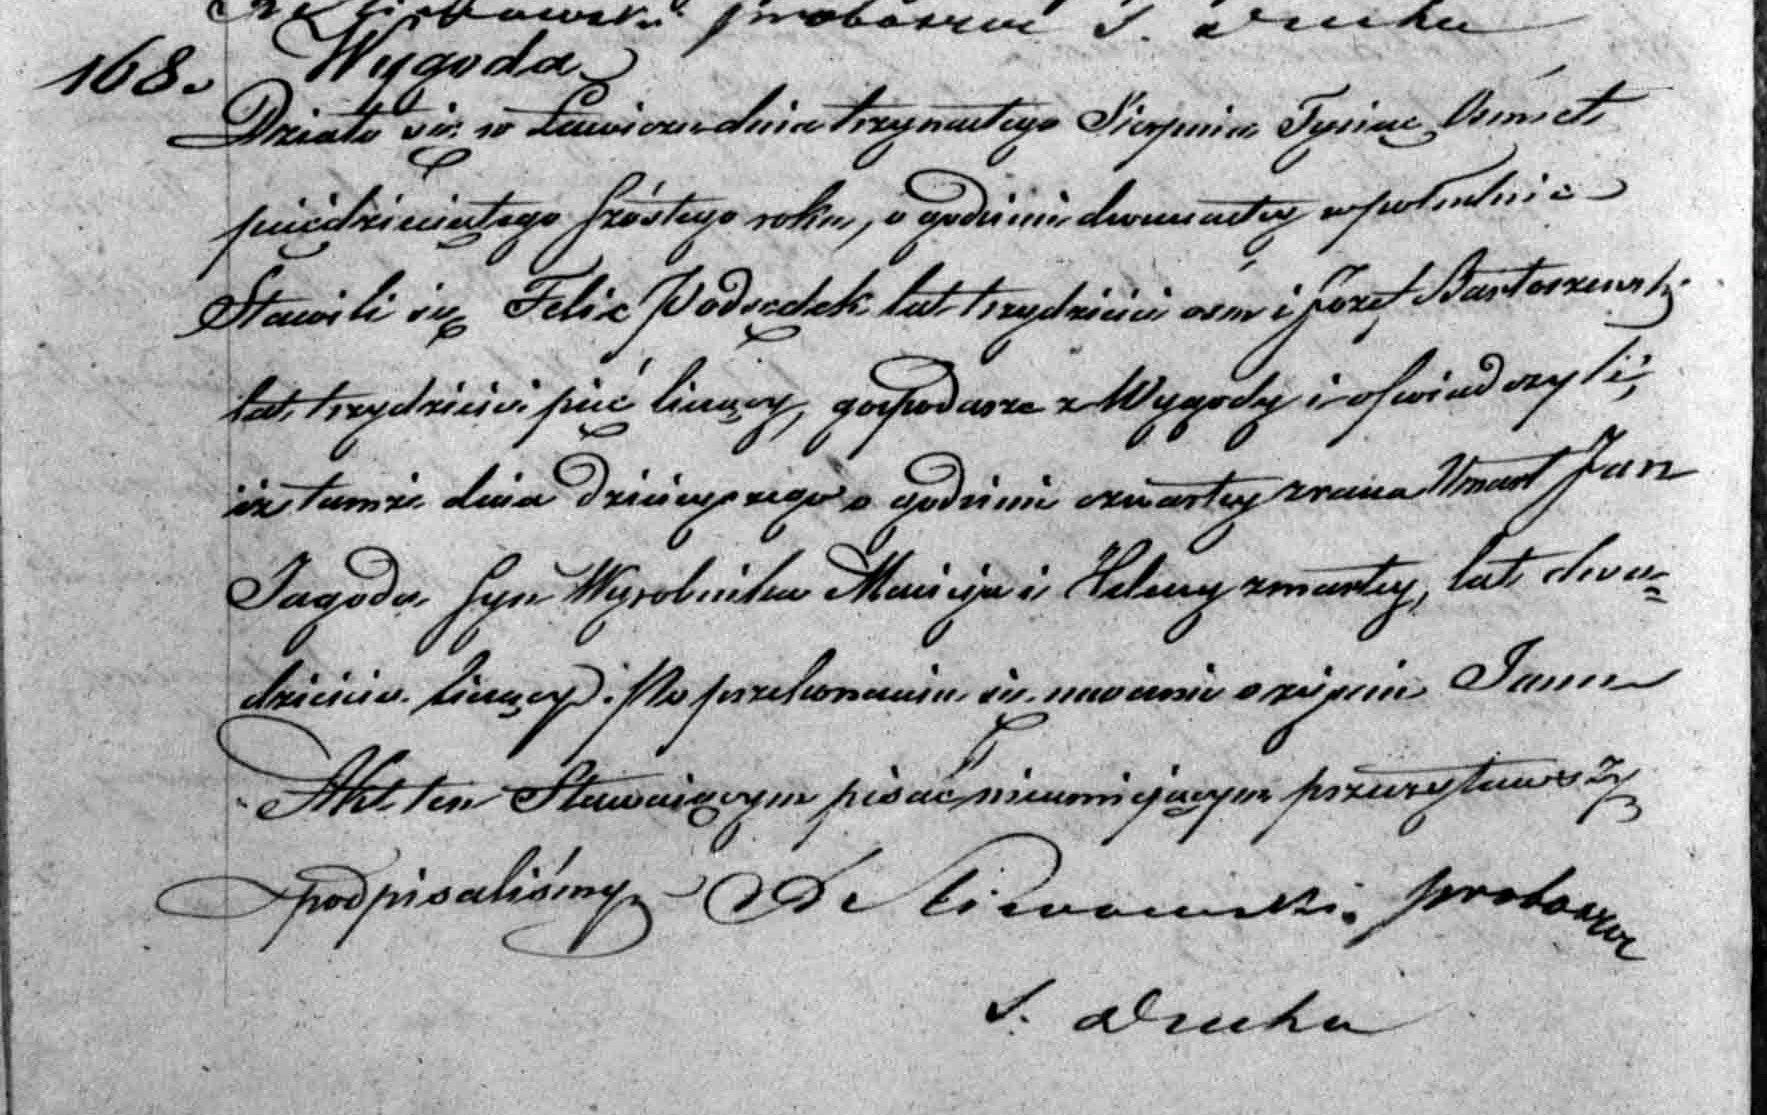 proboszcz S. Druha
168. Wygoda
Działo się w Łowiczu dnia trzynastego Sierpnia Tysiąc Osmset
pięćdziesiątego szóstego roku, o godzinie dwunastey w południe
Stawili się Felix Wodsedek lat trzydzieści osm i Jozef Bartoszewski
lat trzydzieści pięć liczący, gospodarze z Wygody i oświadczyli,
iż tamże dnia dzisieyszego o godzinie czwartey zrana Umarł Jan
Jagoda Syn Wyrobnika Macieja i Heleny zmarłey, lat dwa=
dzieścia liczący. Po przekonaniu się naocznie o zejściu Jana
Akt ten Stawaiącym pisać nieumiejącym przeczytawszy
podpisaliśmy proboszcz
S. Druha